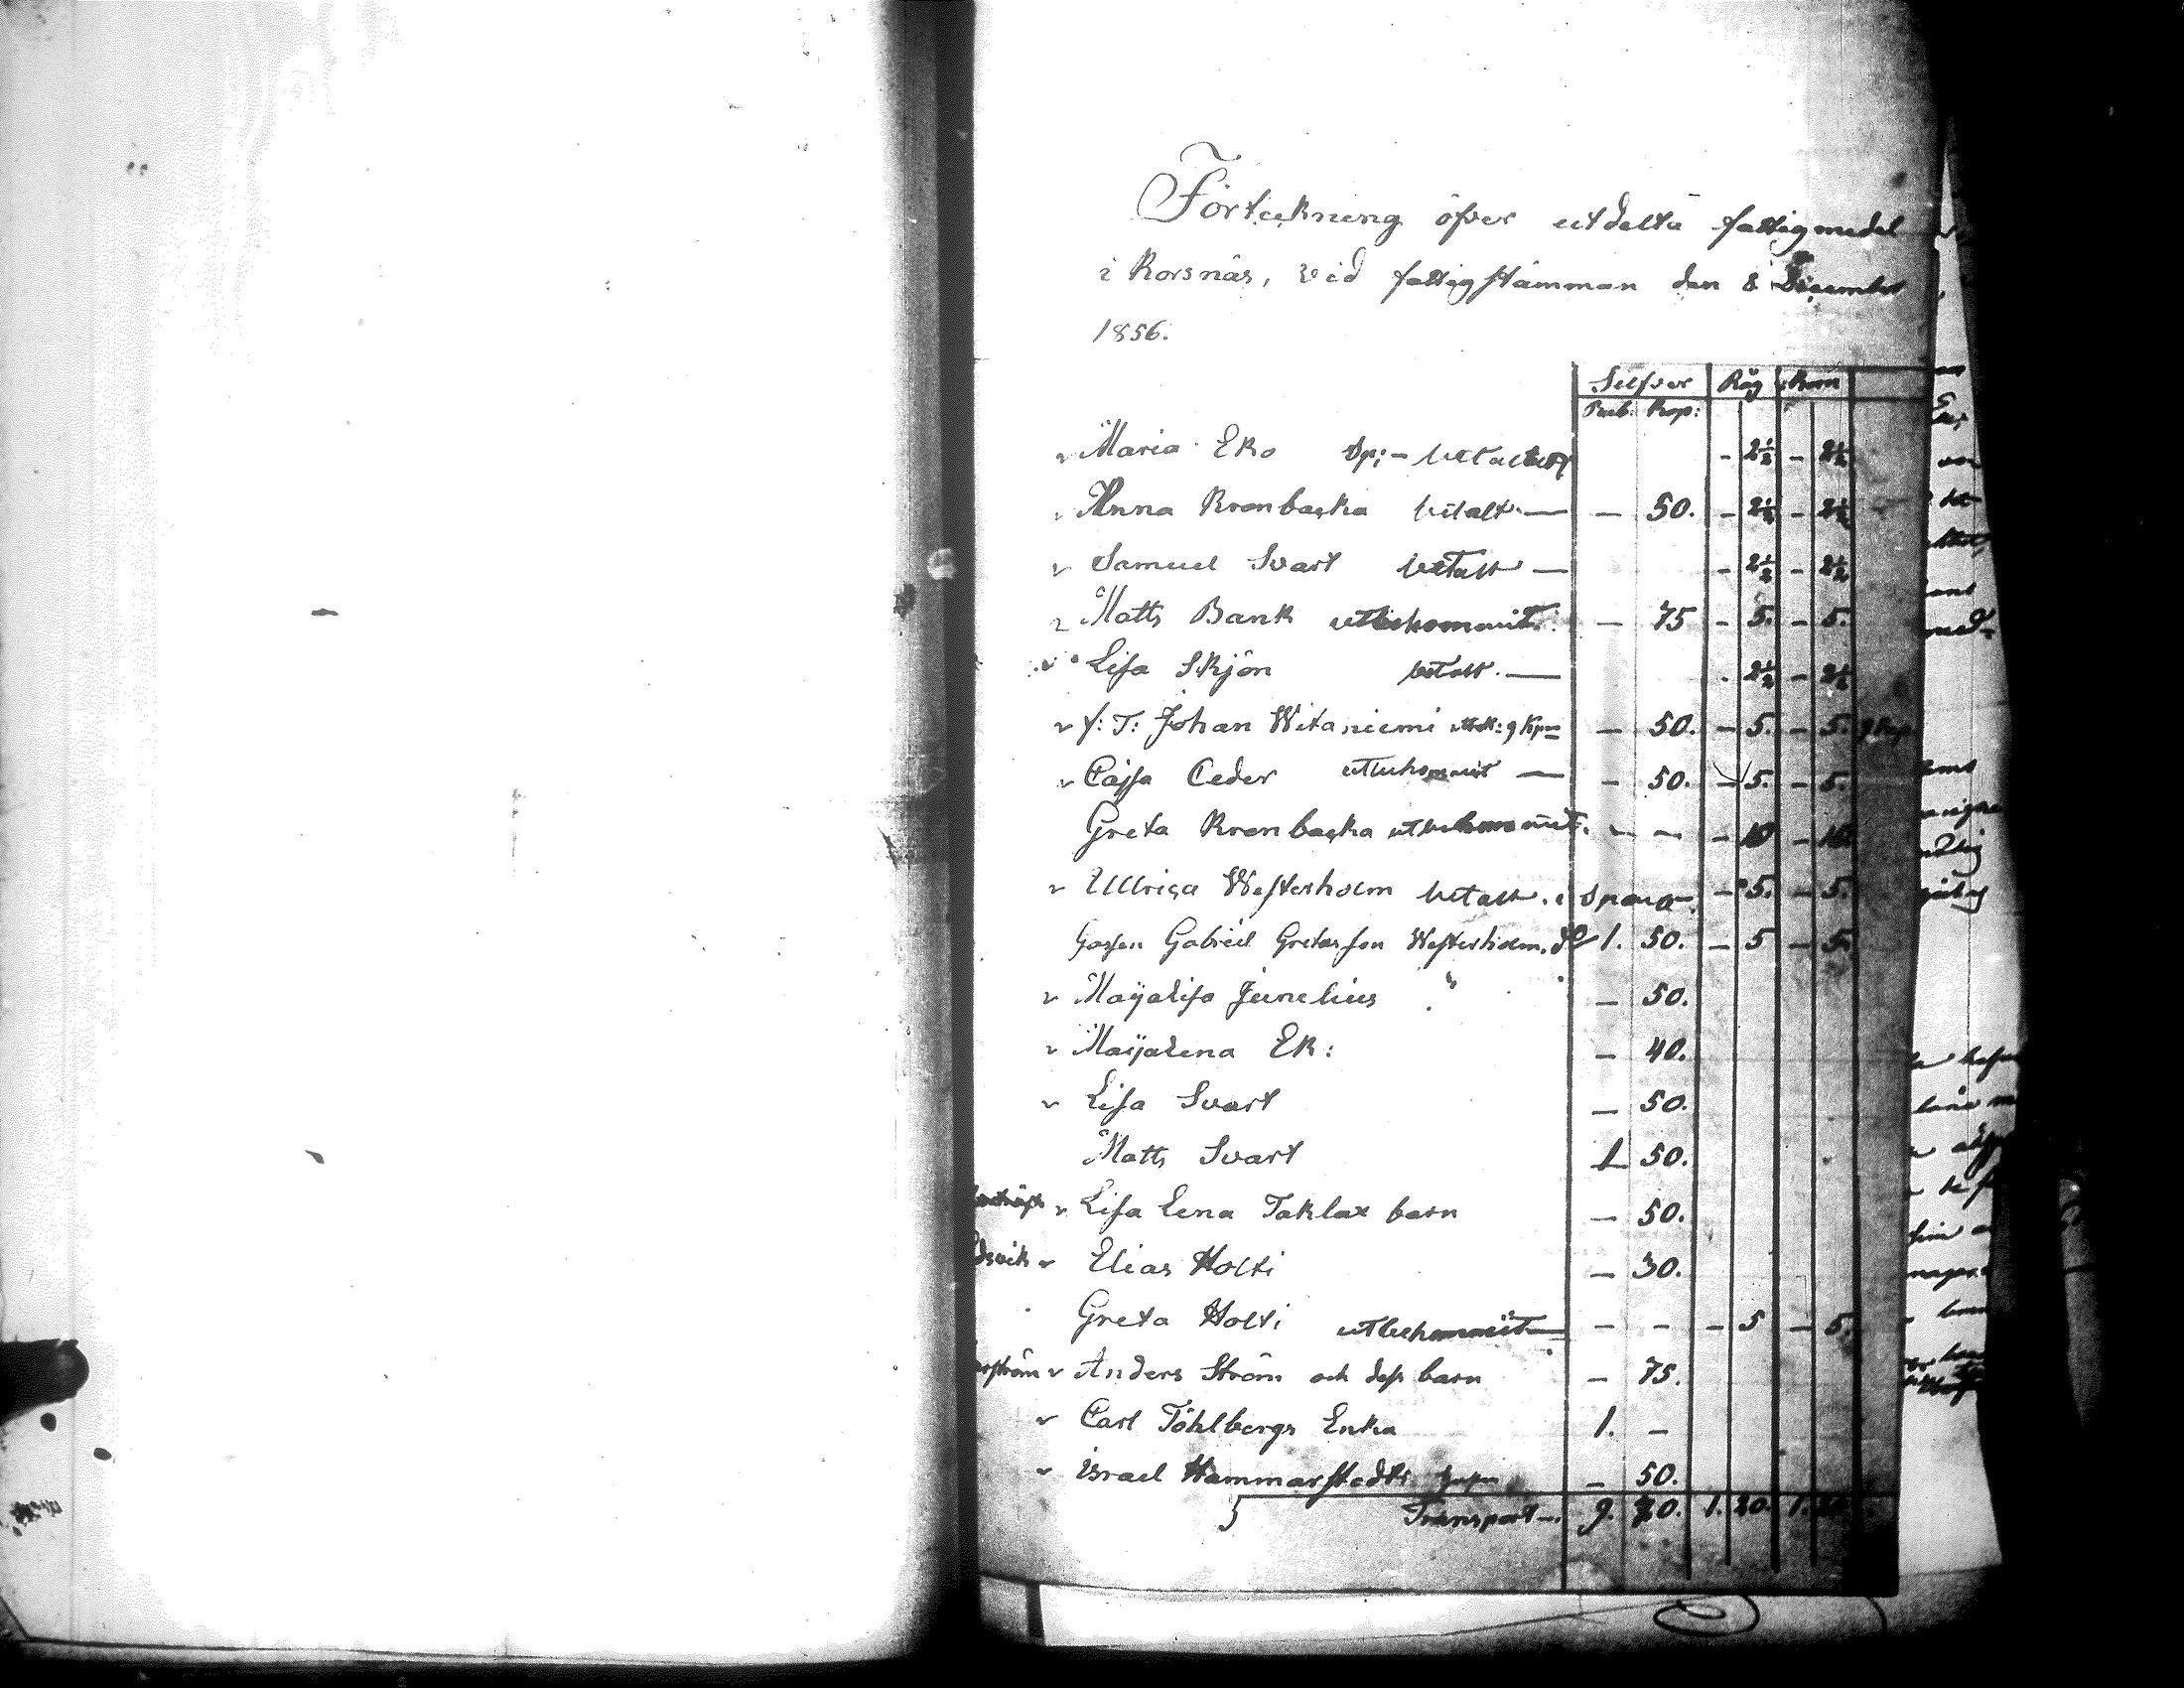 Förteckning öfver utdelta fattigmedel
i Korsnäs, vid fattigstämman den 8 December
1856.
Silfver Råg Korn
Rub: Kop:
v Maria Eko Sp:- betalt - 2½ - 2½
Anna Kronbacka betalt — - 50. - 2½ - 2½
v Samuel Svart betalt — - 2½ - 2½
v Matts Bank utbekommit. - 75 - 5. - 5.
v Lisa Skjön betalt. — - 2½ - 2½
v f: T: Johan Witaniemi 9 Kpr - 50. - 5. - 5. 9 Kap
v Cajsa Ceder utbekommit — - 50. - 5. - 5.
Greta Kronbacka utbekommit. - - - 10 - 10
v Ullrica Westerholm betalt. i Spana - 5. - 5.
Gossen Gabriel Gretasson Westerholm. 1. 50. - 5 - 5.
v Maijalisa Junelius " - 50.
v Maijalena Ek: - 40.
v Lisa Svart - 50.
Matts Svart 1 50.
v Lisa Lena Taklax barn - 50.
v Elias Holti - 30.
Greta Holti utbekommit — - - - 5 - 5.
v Anders Ström och dess barn - 75.
v Carl Töhlbergs Enka 1. -
v Israel Hammarstedts - 50.
Transport —. 9. 20. 1. 20. 1.